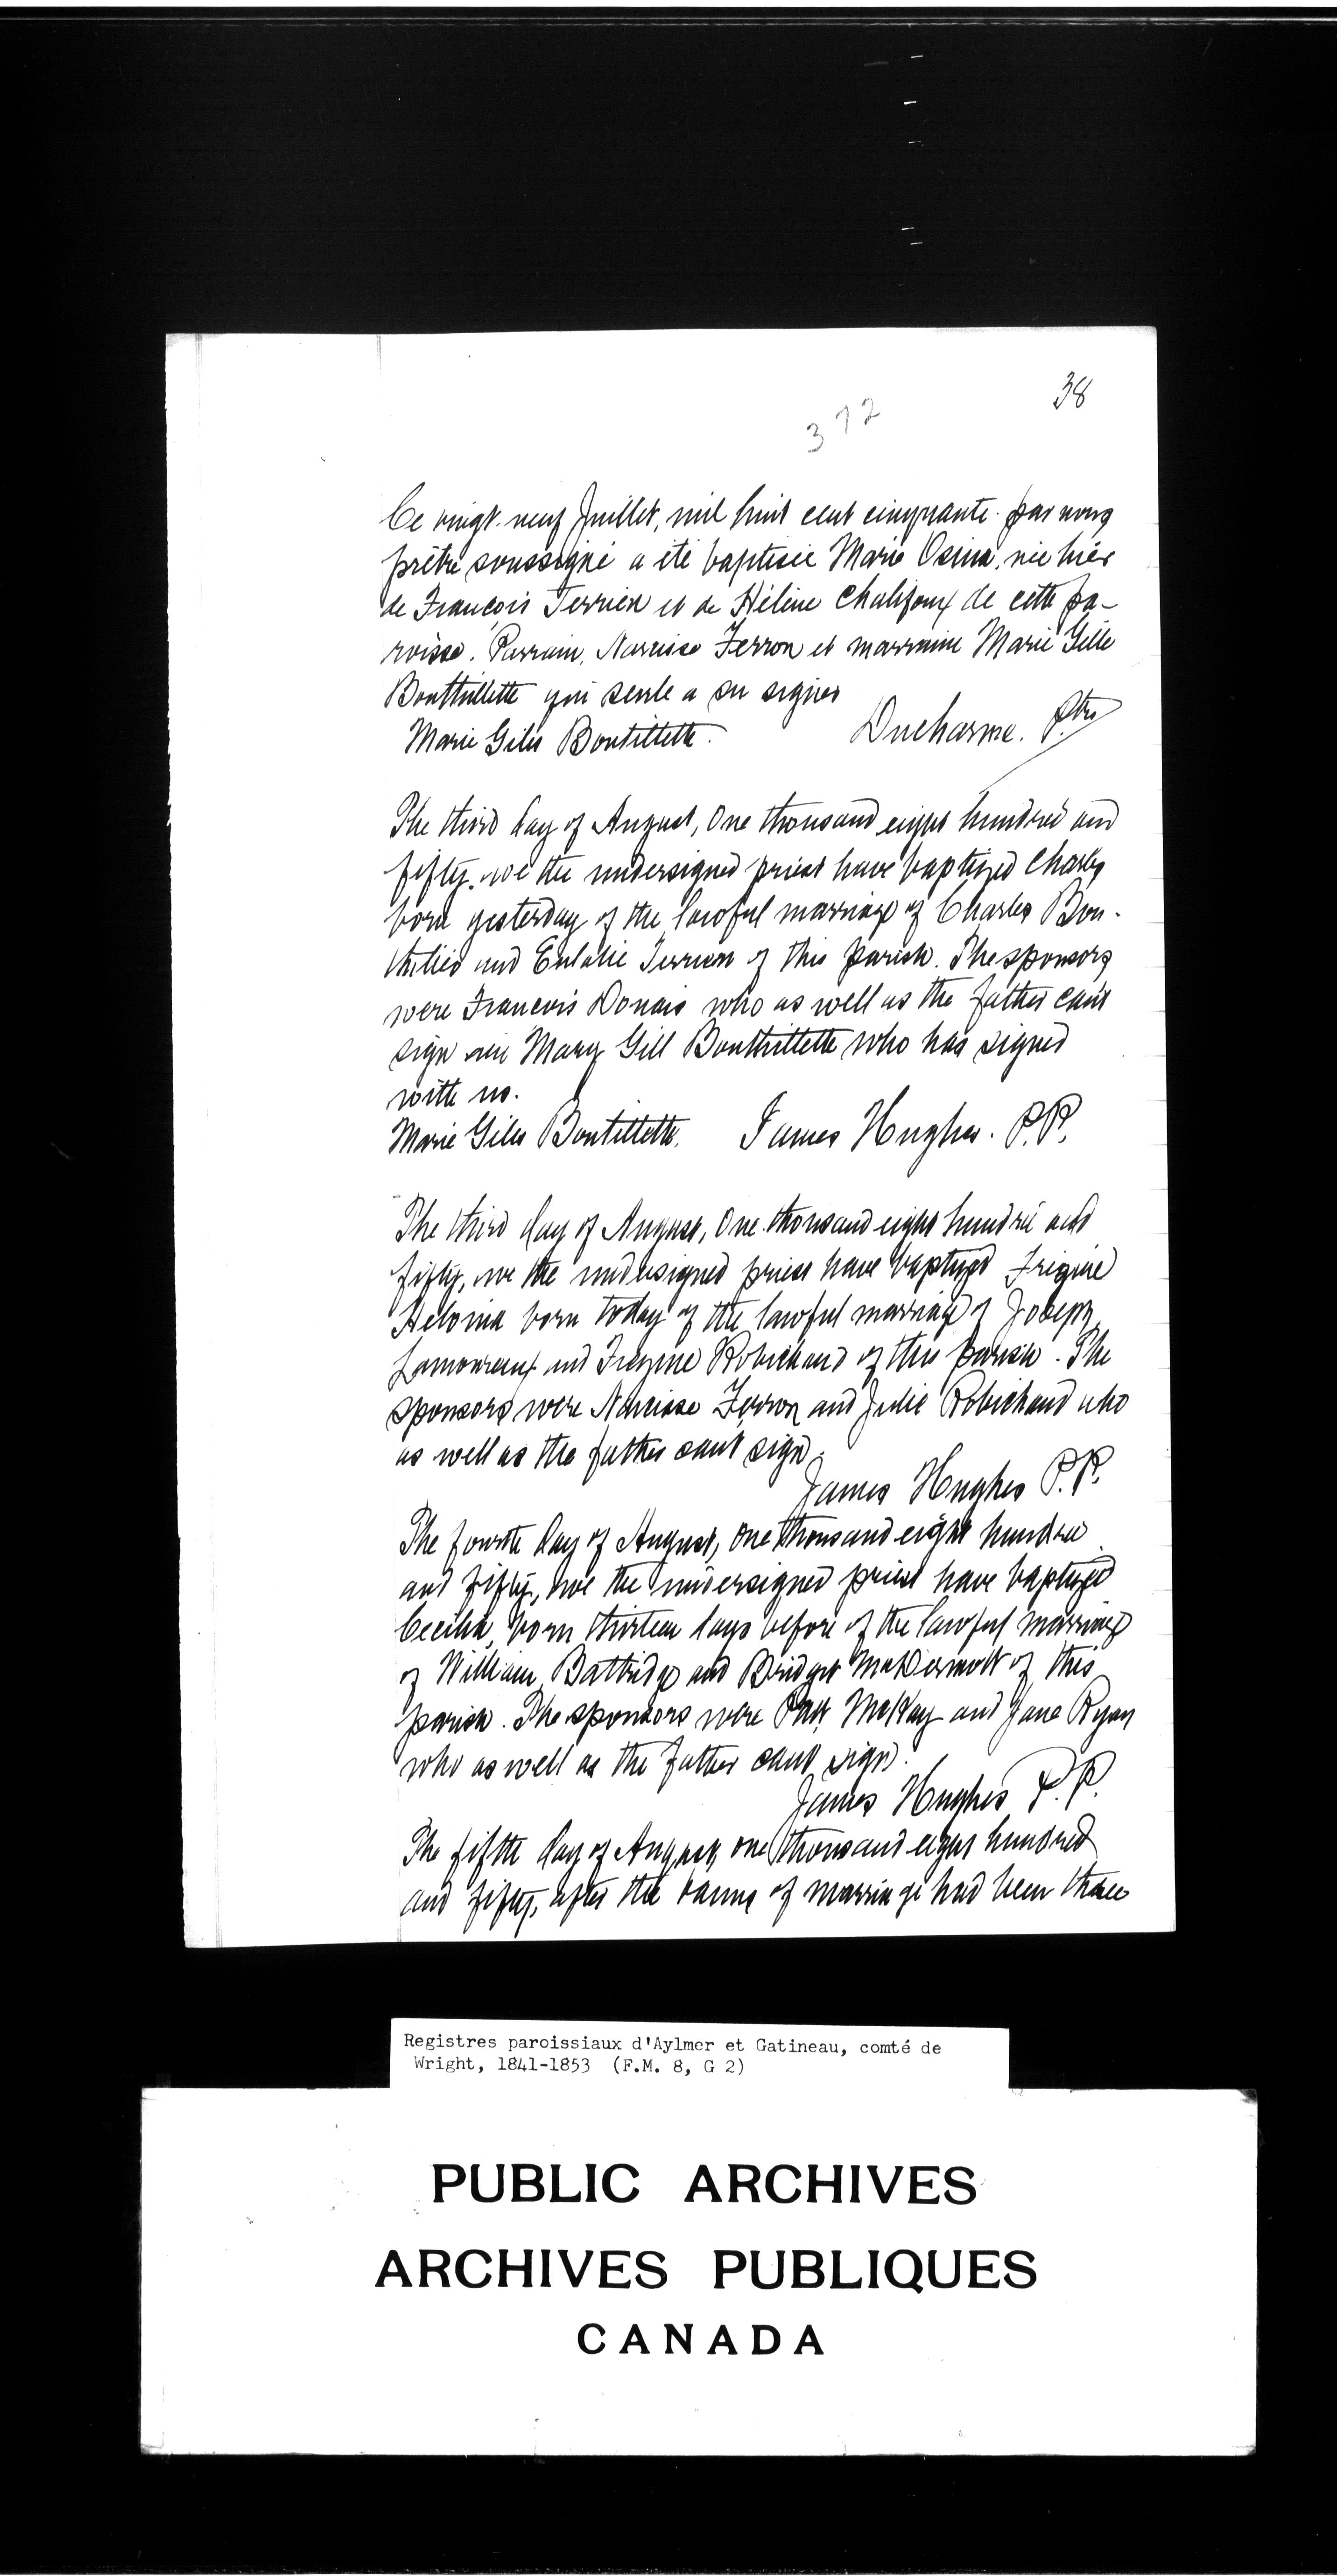 38
372
Ce vingt-neuf Juillet, mil huit cent cinquante par nous
prêtre soussigné a été baptisée Marie Osina, née hier
de François Terrien et de Hélène Chalifoux de cette pa-
roisse. Parrain, Narcisse Ferron et marraine Marie Gille
Bouthillette qui seule a su signer
Marie Giles Boutillette. Ducharme. Ptre
The third day of August, One thousand eight hundred and
fifty, we the undersigned priest have baptized Charles
born yesterday of the lawful marriage of Charles Bou-
thilier and Eulalie Terrien of this parish. The sponsors
were Francois Donais who as well as the father can't
sign Mary Gill Bouthillette who has signed
with us.
Marie Giles Boutillette. James Hughes. P.P.
The third day of August, One thousand eight hundred and
fifty, we the undersigned priest have baptized
born today of the lawful marriage of Joseph
Lamoureux and Robichaud of this parish. The
sponsors were Narcisse Ferron and Julie Robichaud who
as well as the father cant sign.
James Hughes P.P.
The fourth day of August, one thousand eight hundred
and fifty, we the undersigned priest have baptized
Cecilia, born thirteen days before of the lawful marriage
of William Battridge and Bridget McDermott of this
parish. The sponsors were Patk McKay and Jane Ryan
who as well as the father cant sign.
James Hughes P.P.
The fifth day of August, one thousand eight hundred
and fifty, after the banns of marriage had been three
Registres paroissiaux d'Aylmer et Gatineau, comté de
Wright, 1841-1853 (F.M. 8, G 2)
PUBLIC ARCHIVES
ARCHIVES PUBLIQUES
CANADA